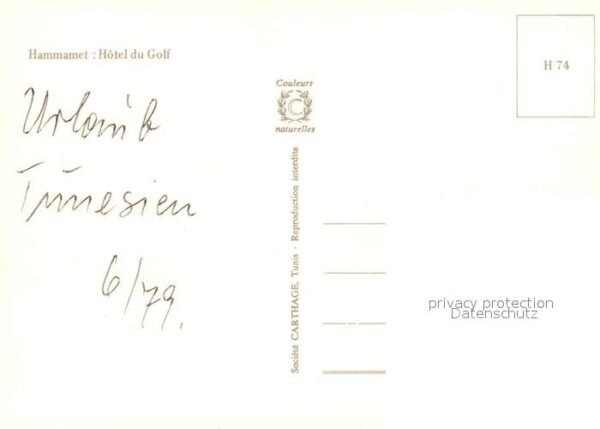 Hammamet : Hôtel du Golf
H 74
Couleurs
C
naturelles
Urlaub
Tunesien
6/79.
Société CARTHAGE, Tunis - Reproduction interdite
privacy protection
Datenschutz